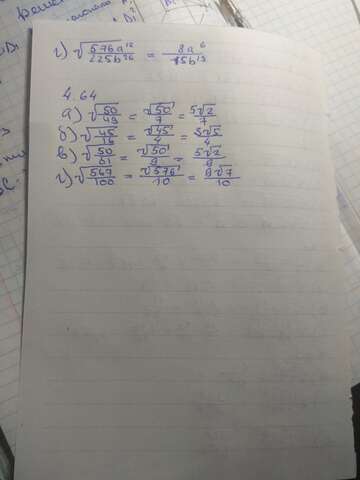 г) √576a¹²/225b²⁶ = 8a⁶/15b¹³
4.64
а) √50/49 = √50/7 = 5√2/7
б) √45/16 = √45/4 = 3√5/4
в) √50/81 = √50/9 = 5√2/9
г) √567/100 = √576/10 = 9√7/10